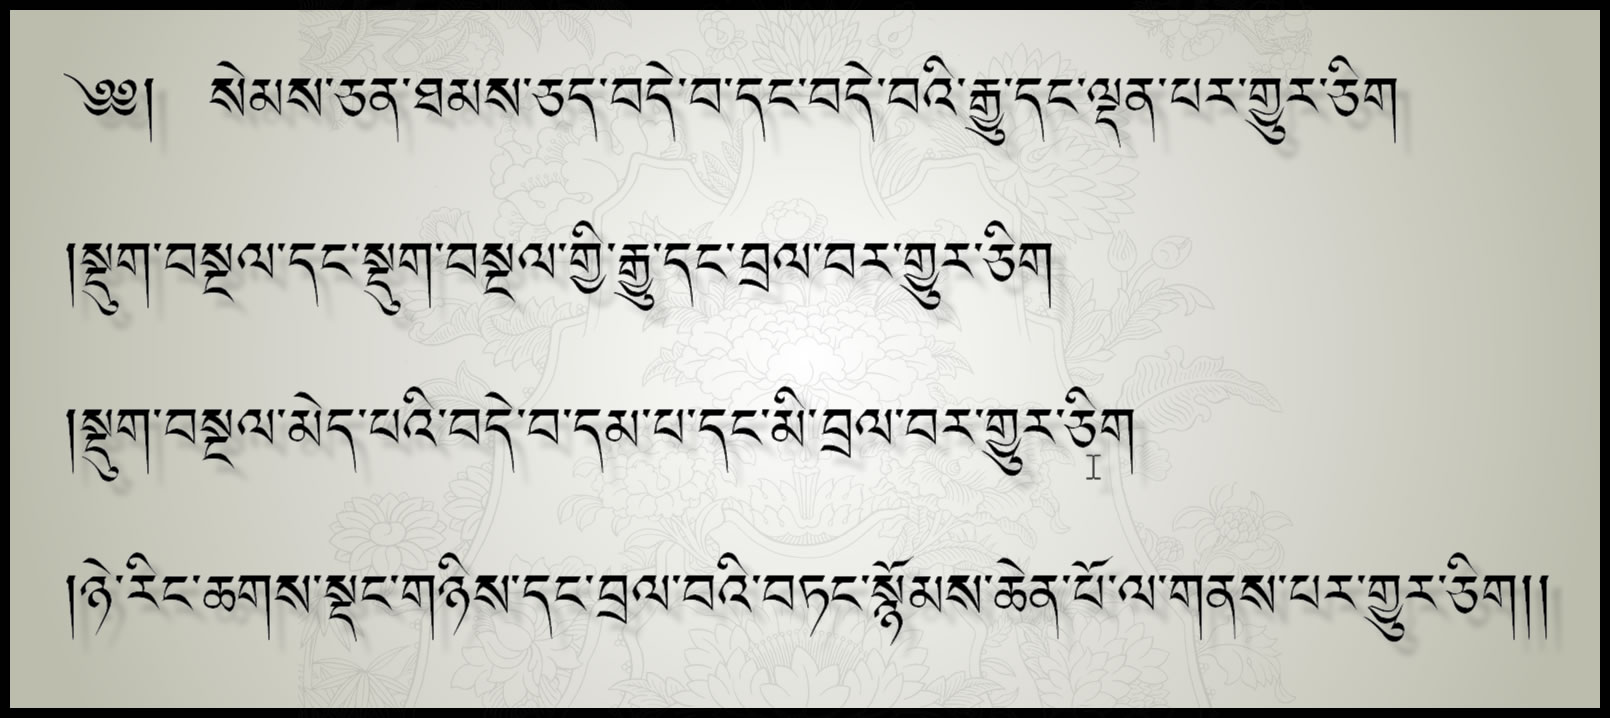 ༄༅། སེམས་ཅན་ཐམས་ཅད་བདེ་བ་དང་བདེ་བའི་རྒྱུ་དང་ལྡན་པར་གྱུར་ཅིག
།སྡུག་བསྔལ་དང་སྡུག་བསྔལ་གྱི་རྒྱུ་དང་བྲལ་བར་གྱུར་ཅིག
།སྡུག་བསྔལ་མེད་པའི་བདེ་བ་དམ་པ་དང་མི་བྲལ་བར་གྱུར་ཅིག
།ཉེ་རིང་ཆགས་སྡང་གཉིས་དང་བྲལ་བའི་བཏང་སྙོམས་ཆེན་པོ་ལ་གནས་པར་གྱུར་ཅིག།།།